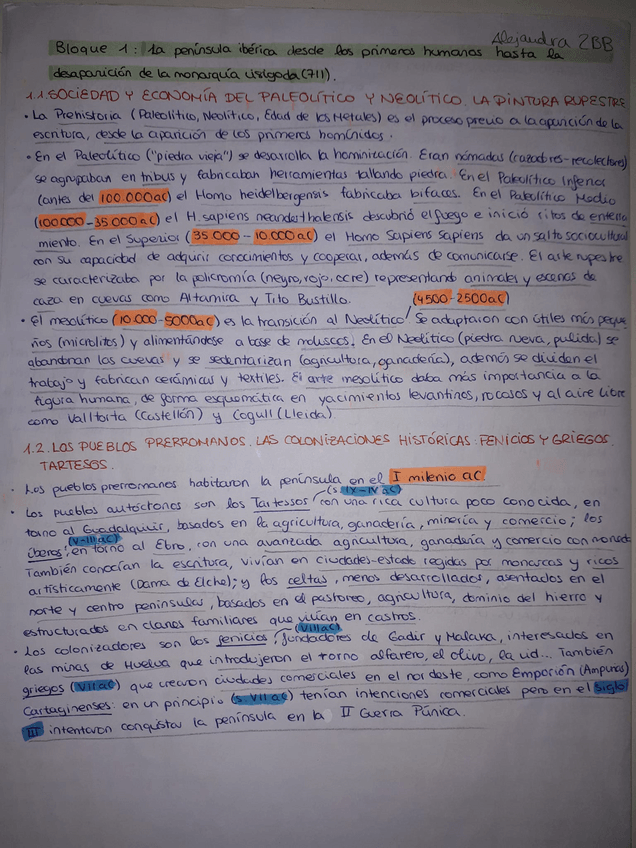 Alejandra 2BB
Bloque 1: La península ibérica desde los primeros humanos hasta la
desaparición de la monarquía visigoda (711).
1.1. SOCIEDAD Y ECONOMÍA DEL PALEOLÍTICO Y NEOLÍTICO. LA PINTURA RUPESTRE
• La Prehistoria (Paleolítico, Neolítico, Edad de los Metales) es el proceso previo a la aparición de la
escritura, desde la aparición de los primeros homínidos.
• En el Paleolítico ("piedra vieja") se desarrolla la hominización. Eran nómadas (cazadores-recolectores)
se agrupaban en tribus y fabricaban herramientas tallando piedra. En el Paleolítico Inferior
(antes del 100.000 a.C) el Homo heidelbergensis fabricaba bifaces. En el Paleolítico Medio
(100.000-35.000 a.C) el H. sapiens neanderthalensis descubrió el fuego e inició ritos de enterra
miento. En el Superior (35.000 - 10.000 a.C) el Homo Sapiens sapiens da un salto sociocultural
con su capacidad de adquirir conocimientos y cooperar, además de comunicarse. El arte rupestre
se caracterizaba por la policromía (negro, rojo, ocre) representando animales y escenas de
caza en cuevas como Altamira y Tito Bustillo.
(4500-2500 a.C)
• El mesolítico (10.000-5000 a.C) es la transición al Neolítico. Se adaptaron con útiles más peque
ños (microlitos) y alimentándose a base de moluscos. En el Neolítico (piedra nueva, pulida) se
abandonan las cuevas y se sedentarizan (agricultura, ganadería), además se dividen el
trabajo y fabrican cerámicas y textiles. El arte mesolítico daba más importancia a la
figura humana, de forma esquemática en yacimientos levantinos, rocosos y al aire libre
como Valltorta (Castellón) y Cogull (Lleida).
1.2. LOS PUEBLOS PRERROMANOS. LAS COLONIZACIONES HISTÓRICAS: FENICIOS Y GRIEGOS.
TARTESOS.
• Los pueblos prerromanos habitaron la península en el I milenio a.C
(s. IX-IV a.C)
• Los pueblos autóctonos son los Tartessos con una rica cultura poco conocida, en
torno al Guadalquivir, basados en la agricultura, ganadería, minería y comercio; los
(V-III a.C)
íberos, en torno al Ebro, con una avanzada agricultura, ganadería y comercio con moneda
También conocían la escritura, vivían en ciudades-estado regidas por monarcas y ricos
artísticamente (Dama de Elche); y los celtas, menos desarrollados, asentados en el
norte y centro peninsular, basados en el pastoreo, agricultura, dominio del hierro y
estructurados en clanes familiares que vivían en castros.
(VIII a.C)
• Los colonizadores son los fenicios, fundadores de Gadir y Malaka, interesados en
las minas de Huelva que introdujeron el torno alfarero, el olivo, la vid... También
griegos (VII a.C) que crearon ciudades comerciales en el nordeste, como Emporion (Ampurias)
Cartaginenses: en un principio (s. VII a.C) tenían intenciones comerciales pero en el siglo
III intentaron conquistar la península en la II Guerra Púnica.